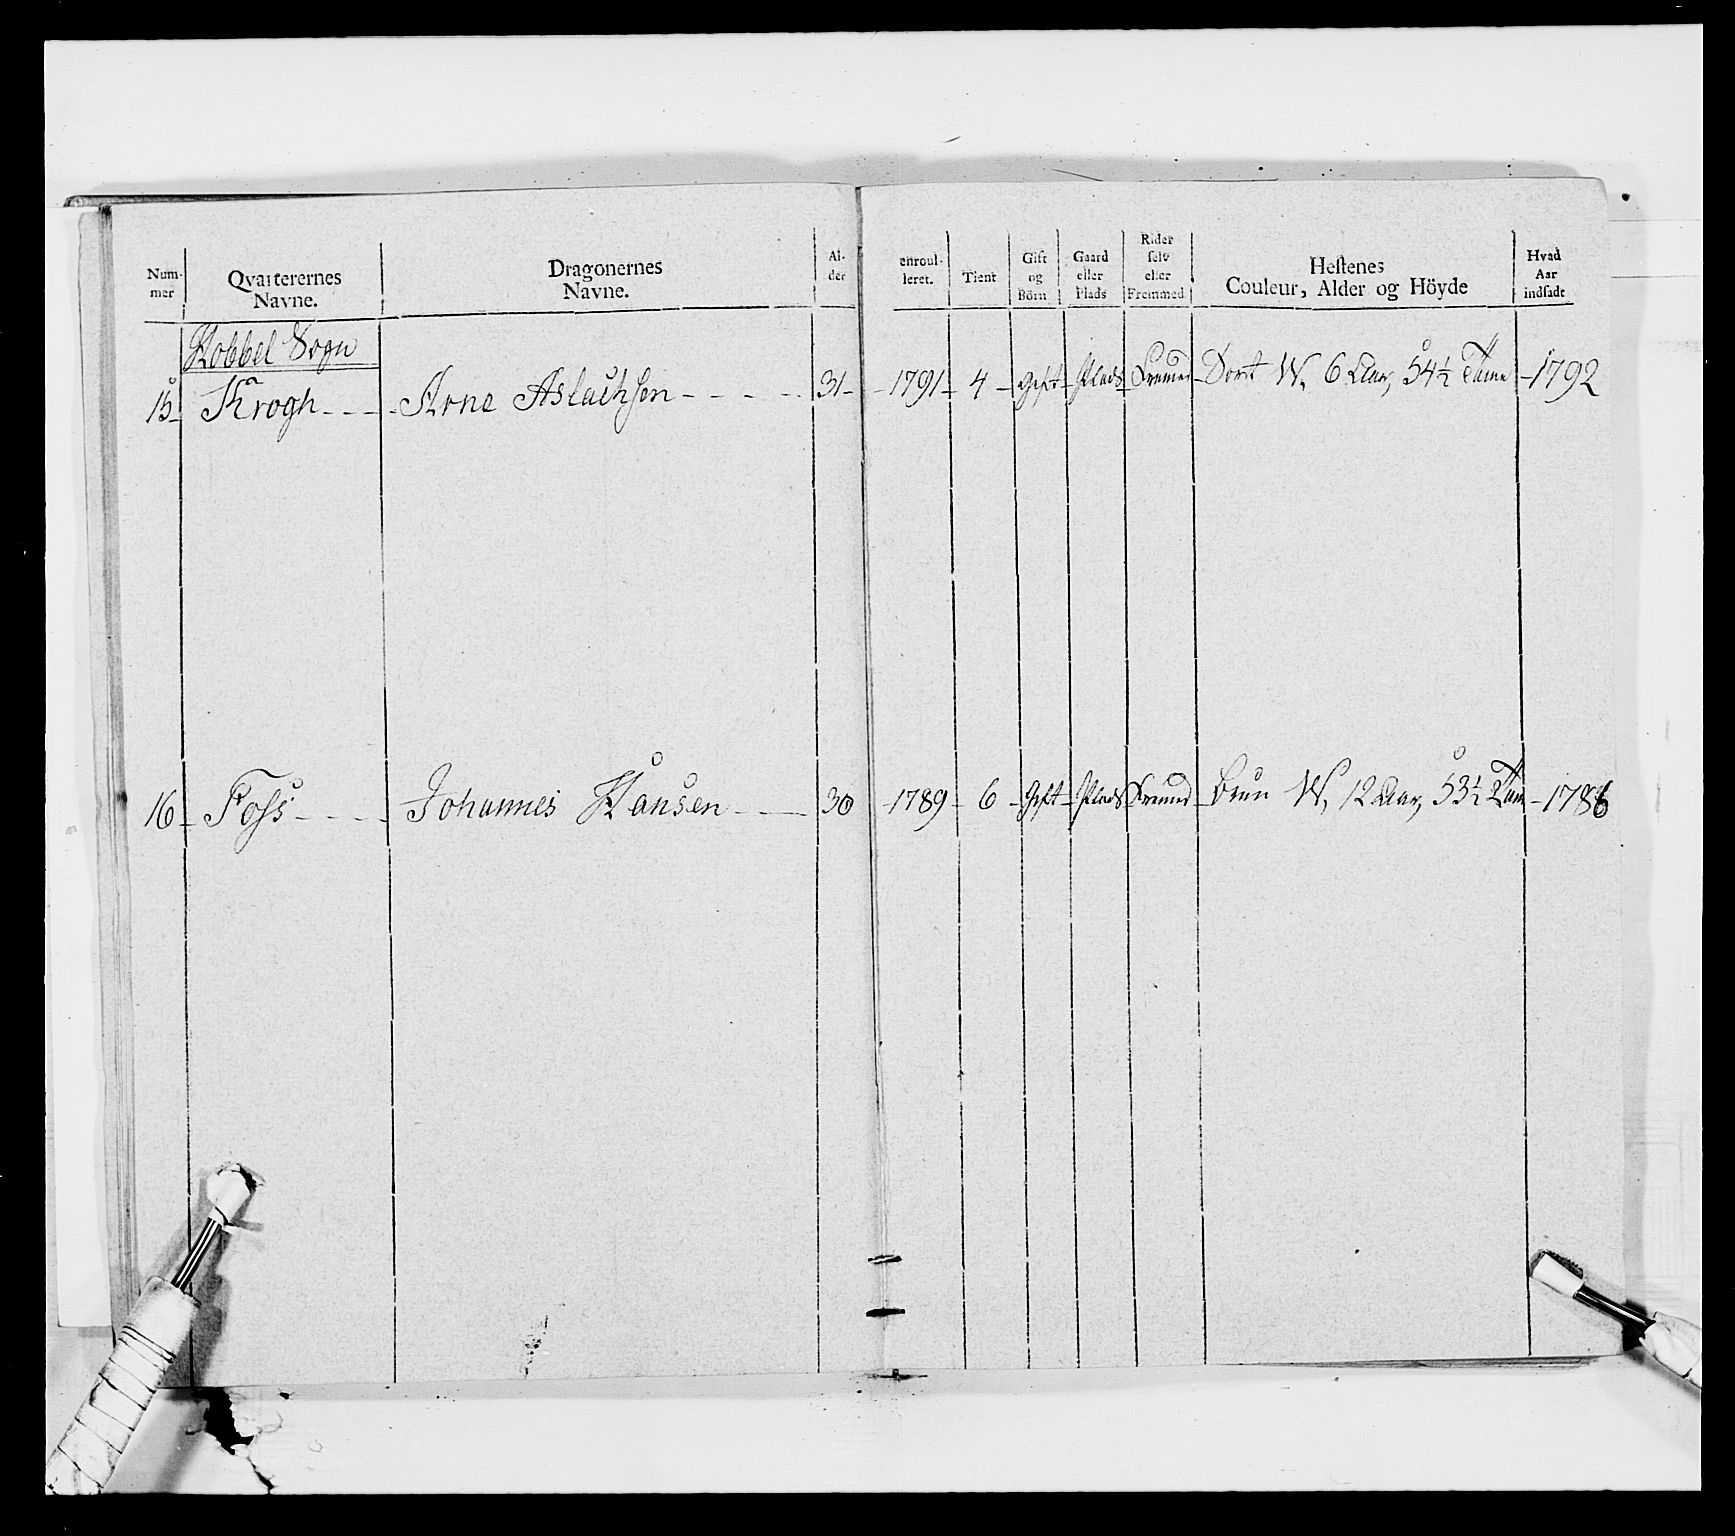 Num-
mer
Qvarterernes
Navne.
Dragonernes
Navne.
Al-
der
enroul-
leret.
Tient
Gift
og
Börn
Gaard
eller
Plads
Rider
selv
eller
Fremmed
Hestenes
Couleur, Alder og Höyde
Hvad
Aar
indsadt
Kobbel Sogn
15 Krogh Arne Aslachsen 31 1791 4 Gift Plads Fremed Sort W, 6 Aar, 54½ Tome 1792
16 Foss Johannes Hansen 30 1789 6 Gift Plads Bruun W, 12 Aar, 53½ Tom 1786